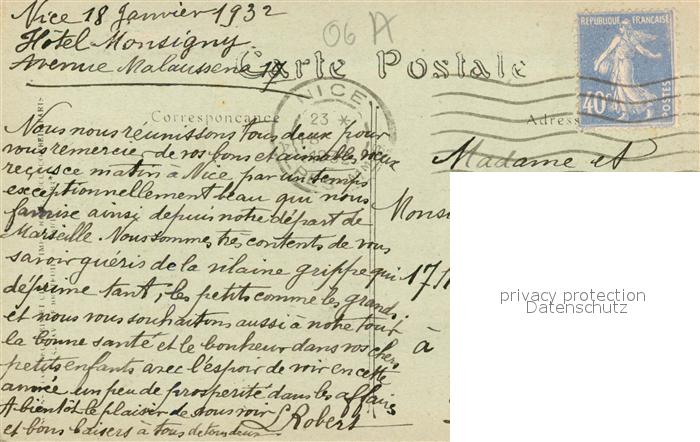 Nice 18 Janvier 1932
Hôtel Monsigny
Avenue Malaussena 17
06 A
Carte Postale
RÉPUBLIQUE FRANÇAISE
40c
POSTES
NICE
23
Correspondance
Adresse
Nous nous réunissons tous deux pour
vous remercier de vos bons et aimables vœux
reçus ce matin à Nice par un temps
exceptionnellement beau qui nous
favorise ainsi depuis notre départ de
Marseille. Nous sommes très contents de vous
savoir guéris de la vilaine grippe qui
déprime tant, les petits comme les grands.
et nous vous souhaitons aussi à notre tour
la bonne santé et le bonheur dans vos chers
petits enfants avec l'espoir de voir en cette
année un peu de prosperité dans les affaires
A bientôt le plaisir de vous voir
L Robert
et bons baisers à tous de tous deux
Madame et
Monsi
17
à
privacy protection
Datenschutz